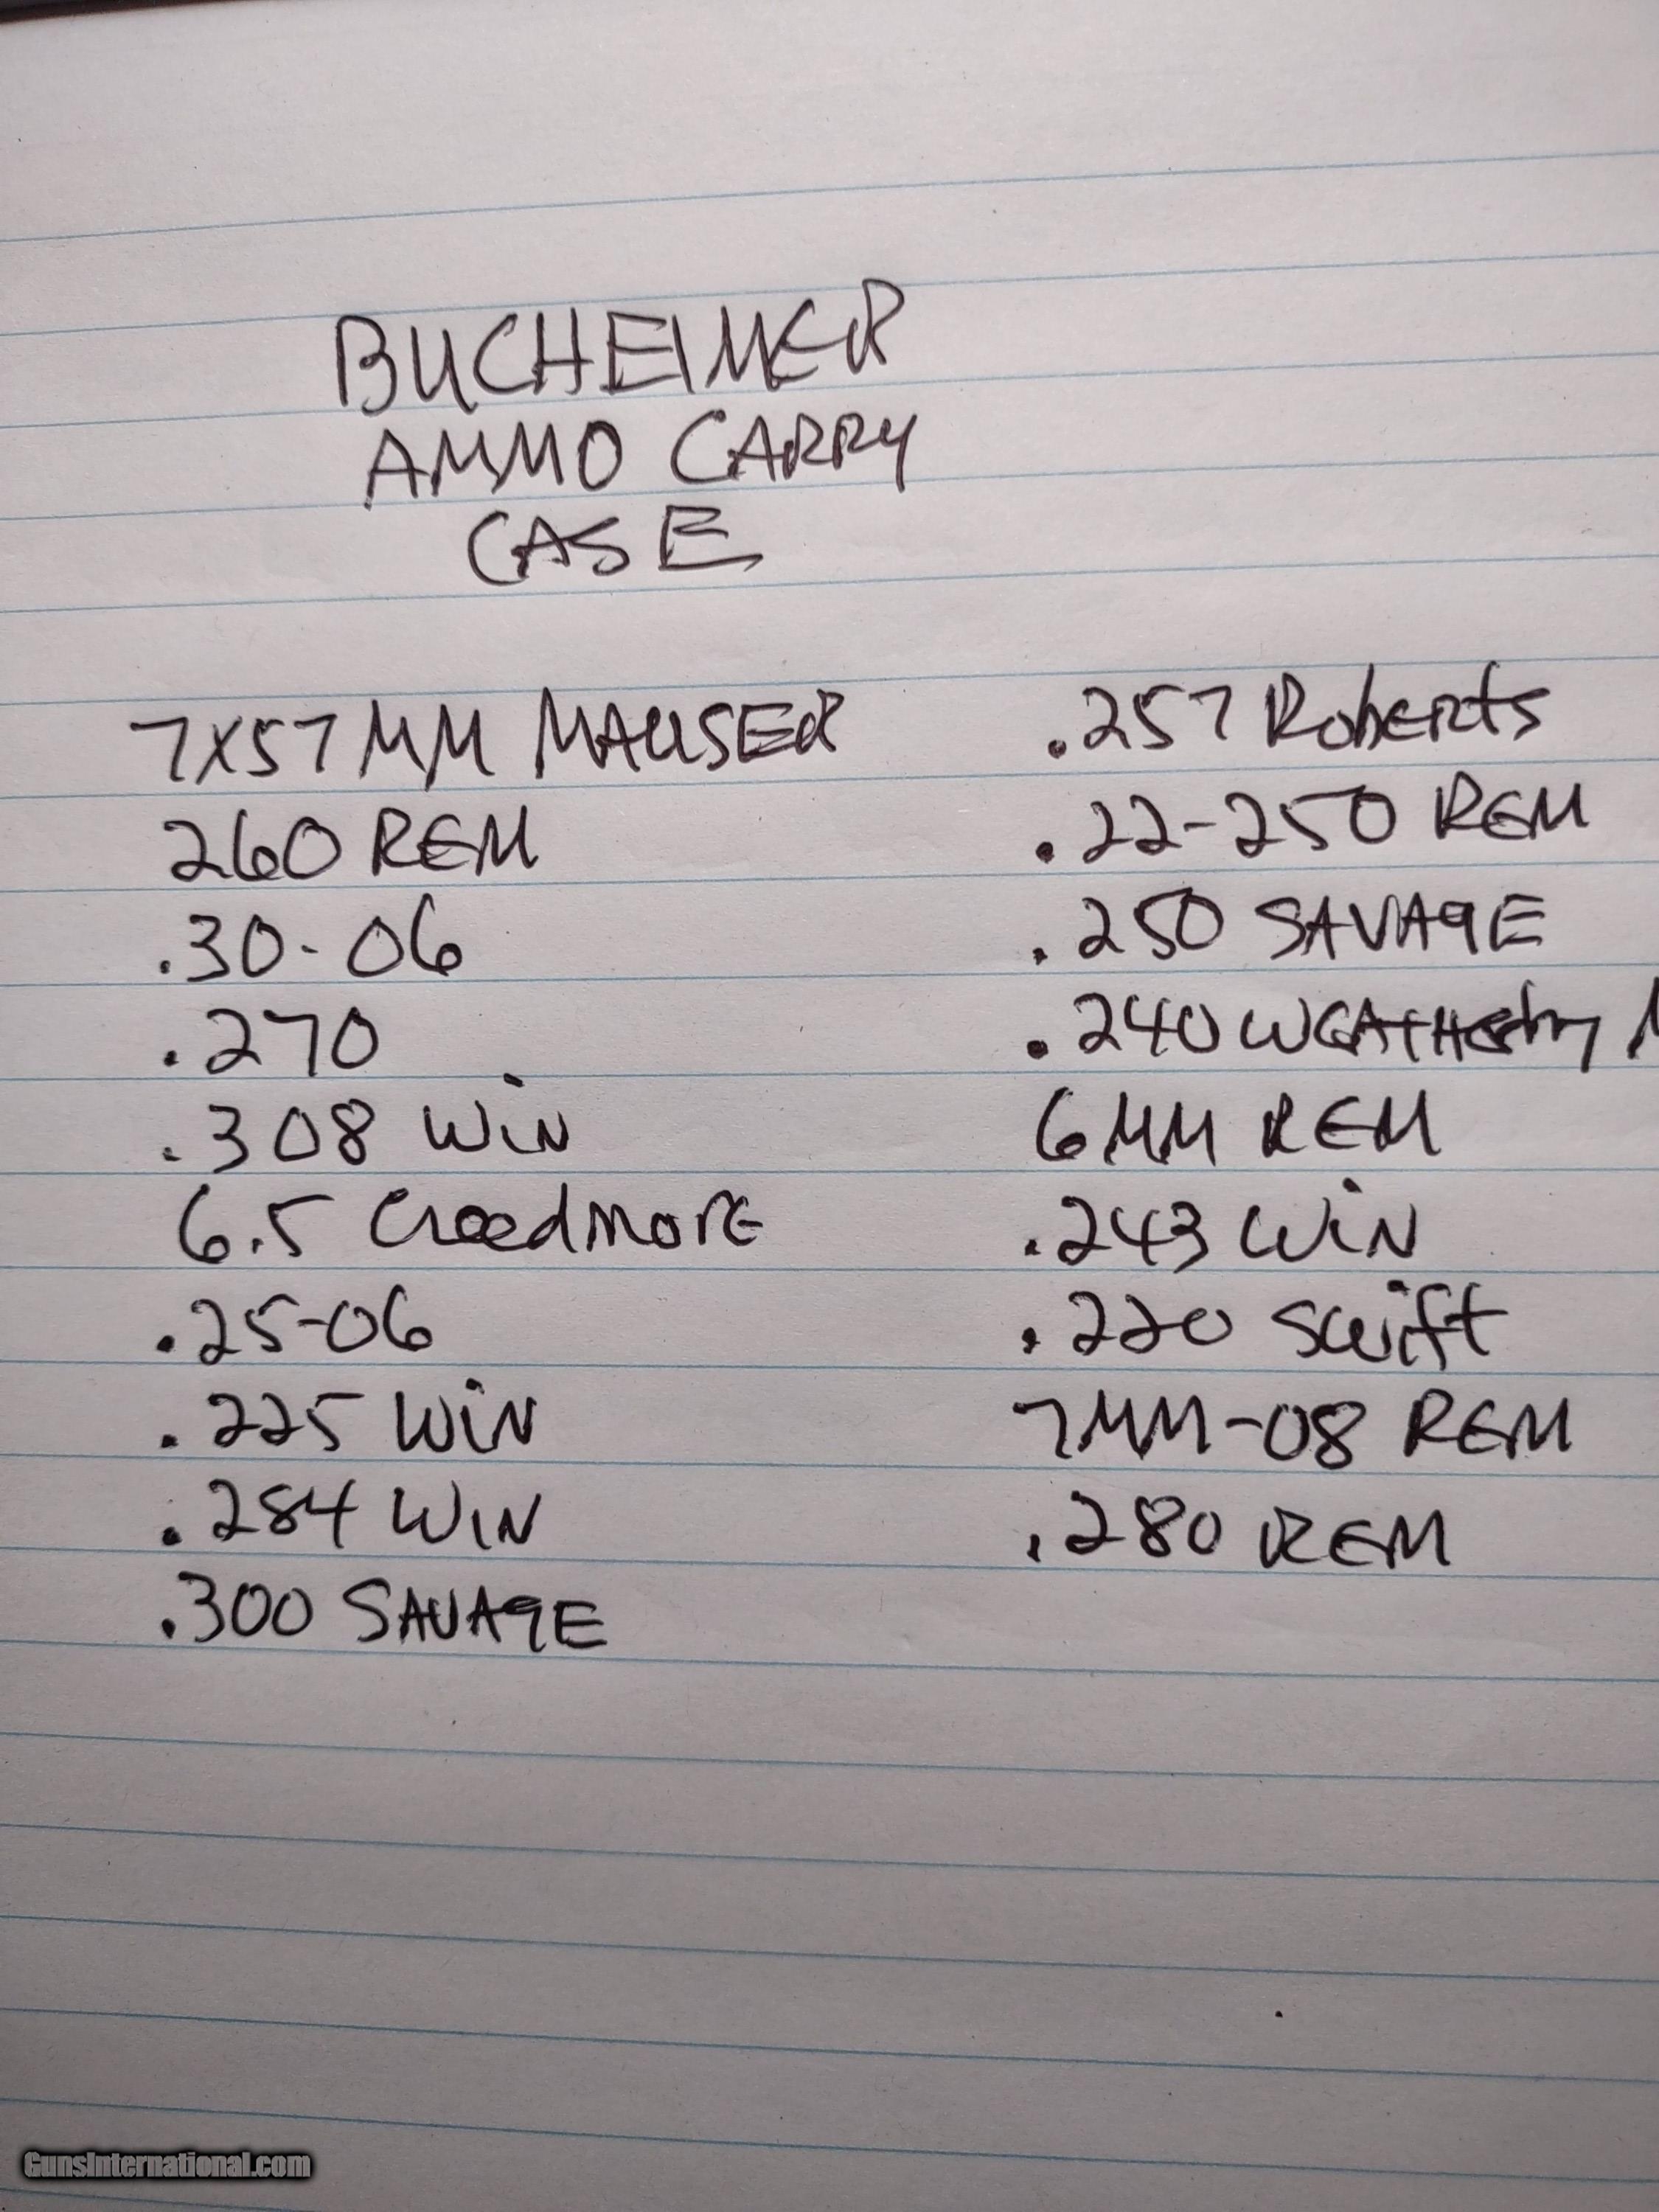 BUCHEIMER
AMMO CARRY
CASE
7X57MM MAUSER
260 REM
.30-06
.270
.308 WIN
6.5 Creedmore
.25-06
.225 WIN
.284 WIN
.300 SAVAGE
.257 Roberts
.22-250 REM
.250 SAVAGE
.240 WEATHERby M
6MM REM
.243 WIN
.220 Swift
7MM-08 REM
.280 REM
GunsInternational.com